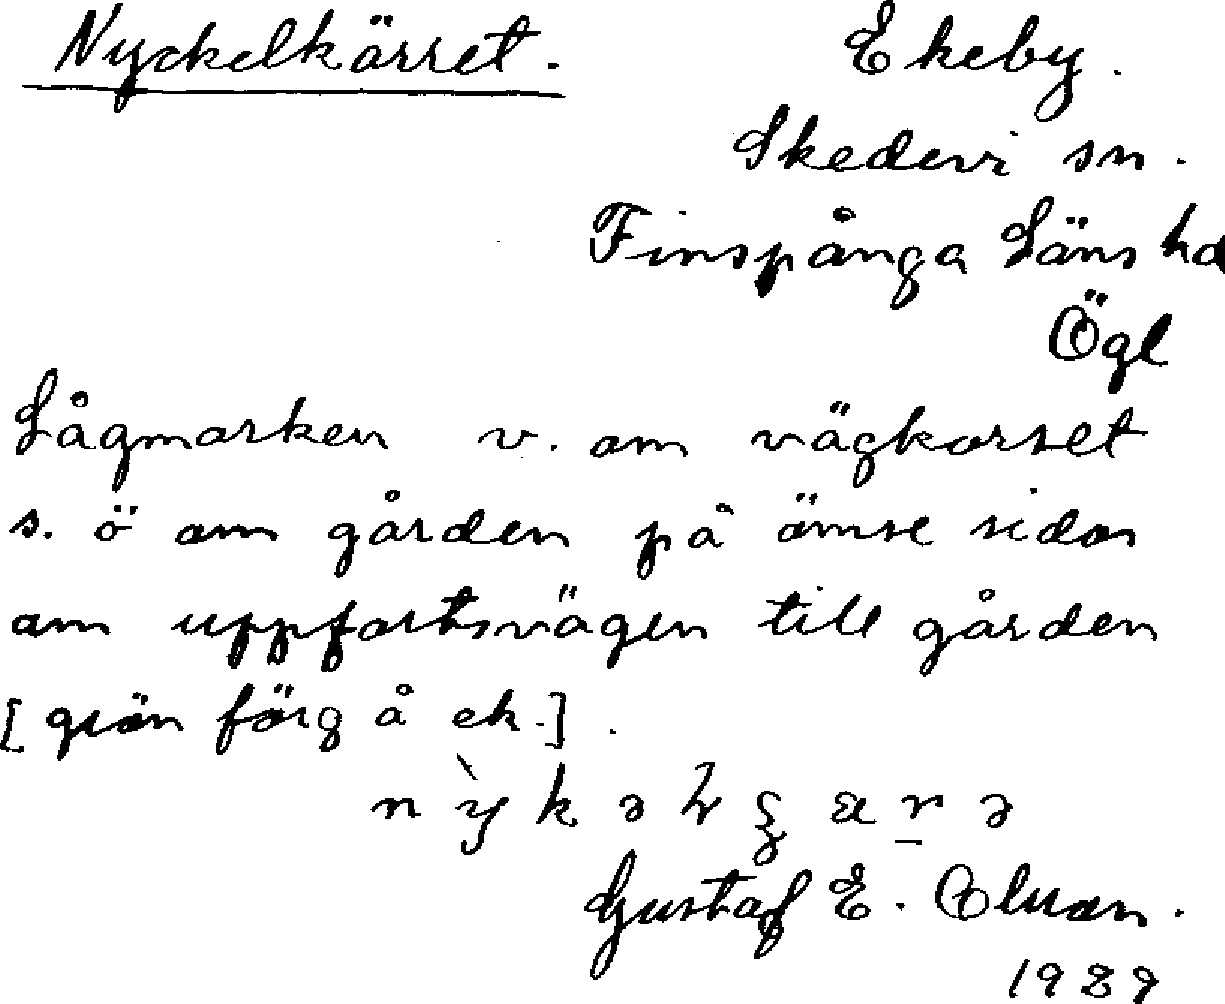 Nyckelkärret. Ekeby.
Skedevi sn.
Finspånga Läns hd
Ögl
Lågmarken v. om vägkorset
s. ö om gården på ömse sidor
om uppfartsvägen till gården
[grön färg å ek.].
Gustaf E.
1929